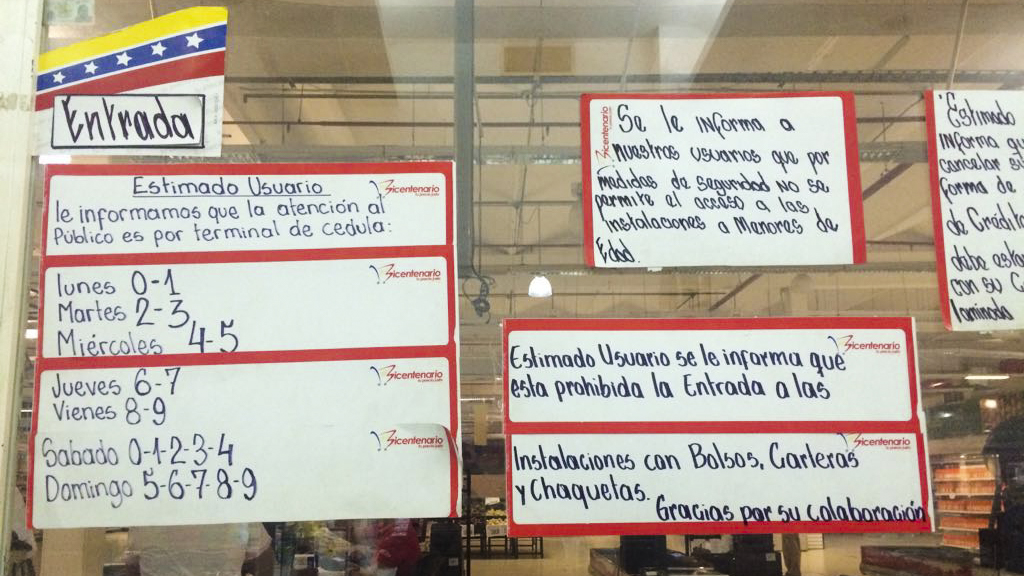 Entrada
Estimado Usuario
Bicentenario
le informamos que la atención al
Público es por terminal de cedula:
Bicentenario
lunes 0-1
Martes 2-3
Miércoles 4-5
Bicentenario
Jueves 6-7
Vienes 8-9
Bicentenario
Sabado 0-1-2-3-4
Domingo 5-6-7-8-9
Bicentenario
Se le informa a
nuestros usuarios que por
medidas de seguridad no se
permite el acceso a las
Instalaciones a Menores de
Edad.
Bicentenario
Estimado Usuario se le informa que
esta prohibida la Entrada a las
Bicentenario
Instalaciones con Bolsos, Carteras
y Chaquetas.
Gracias por su colaboración
Estimado
informa qu
cancelar
forma de
de Crédit
debe esta
con su C
laminada